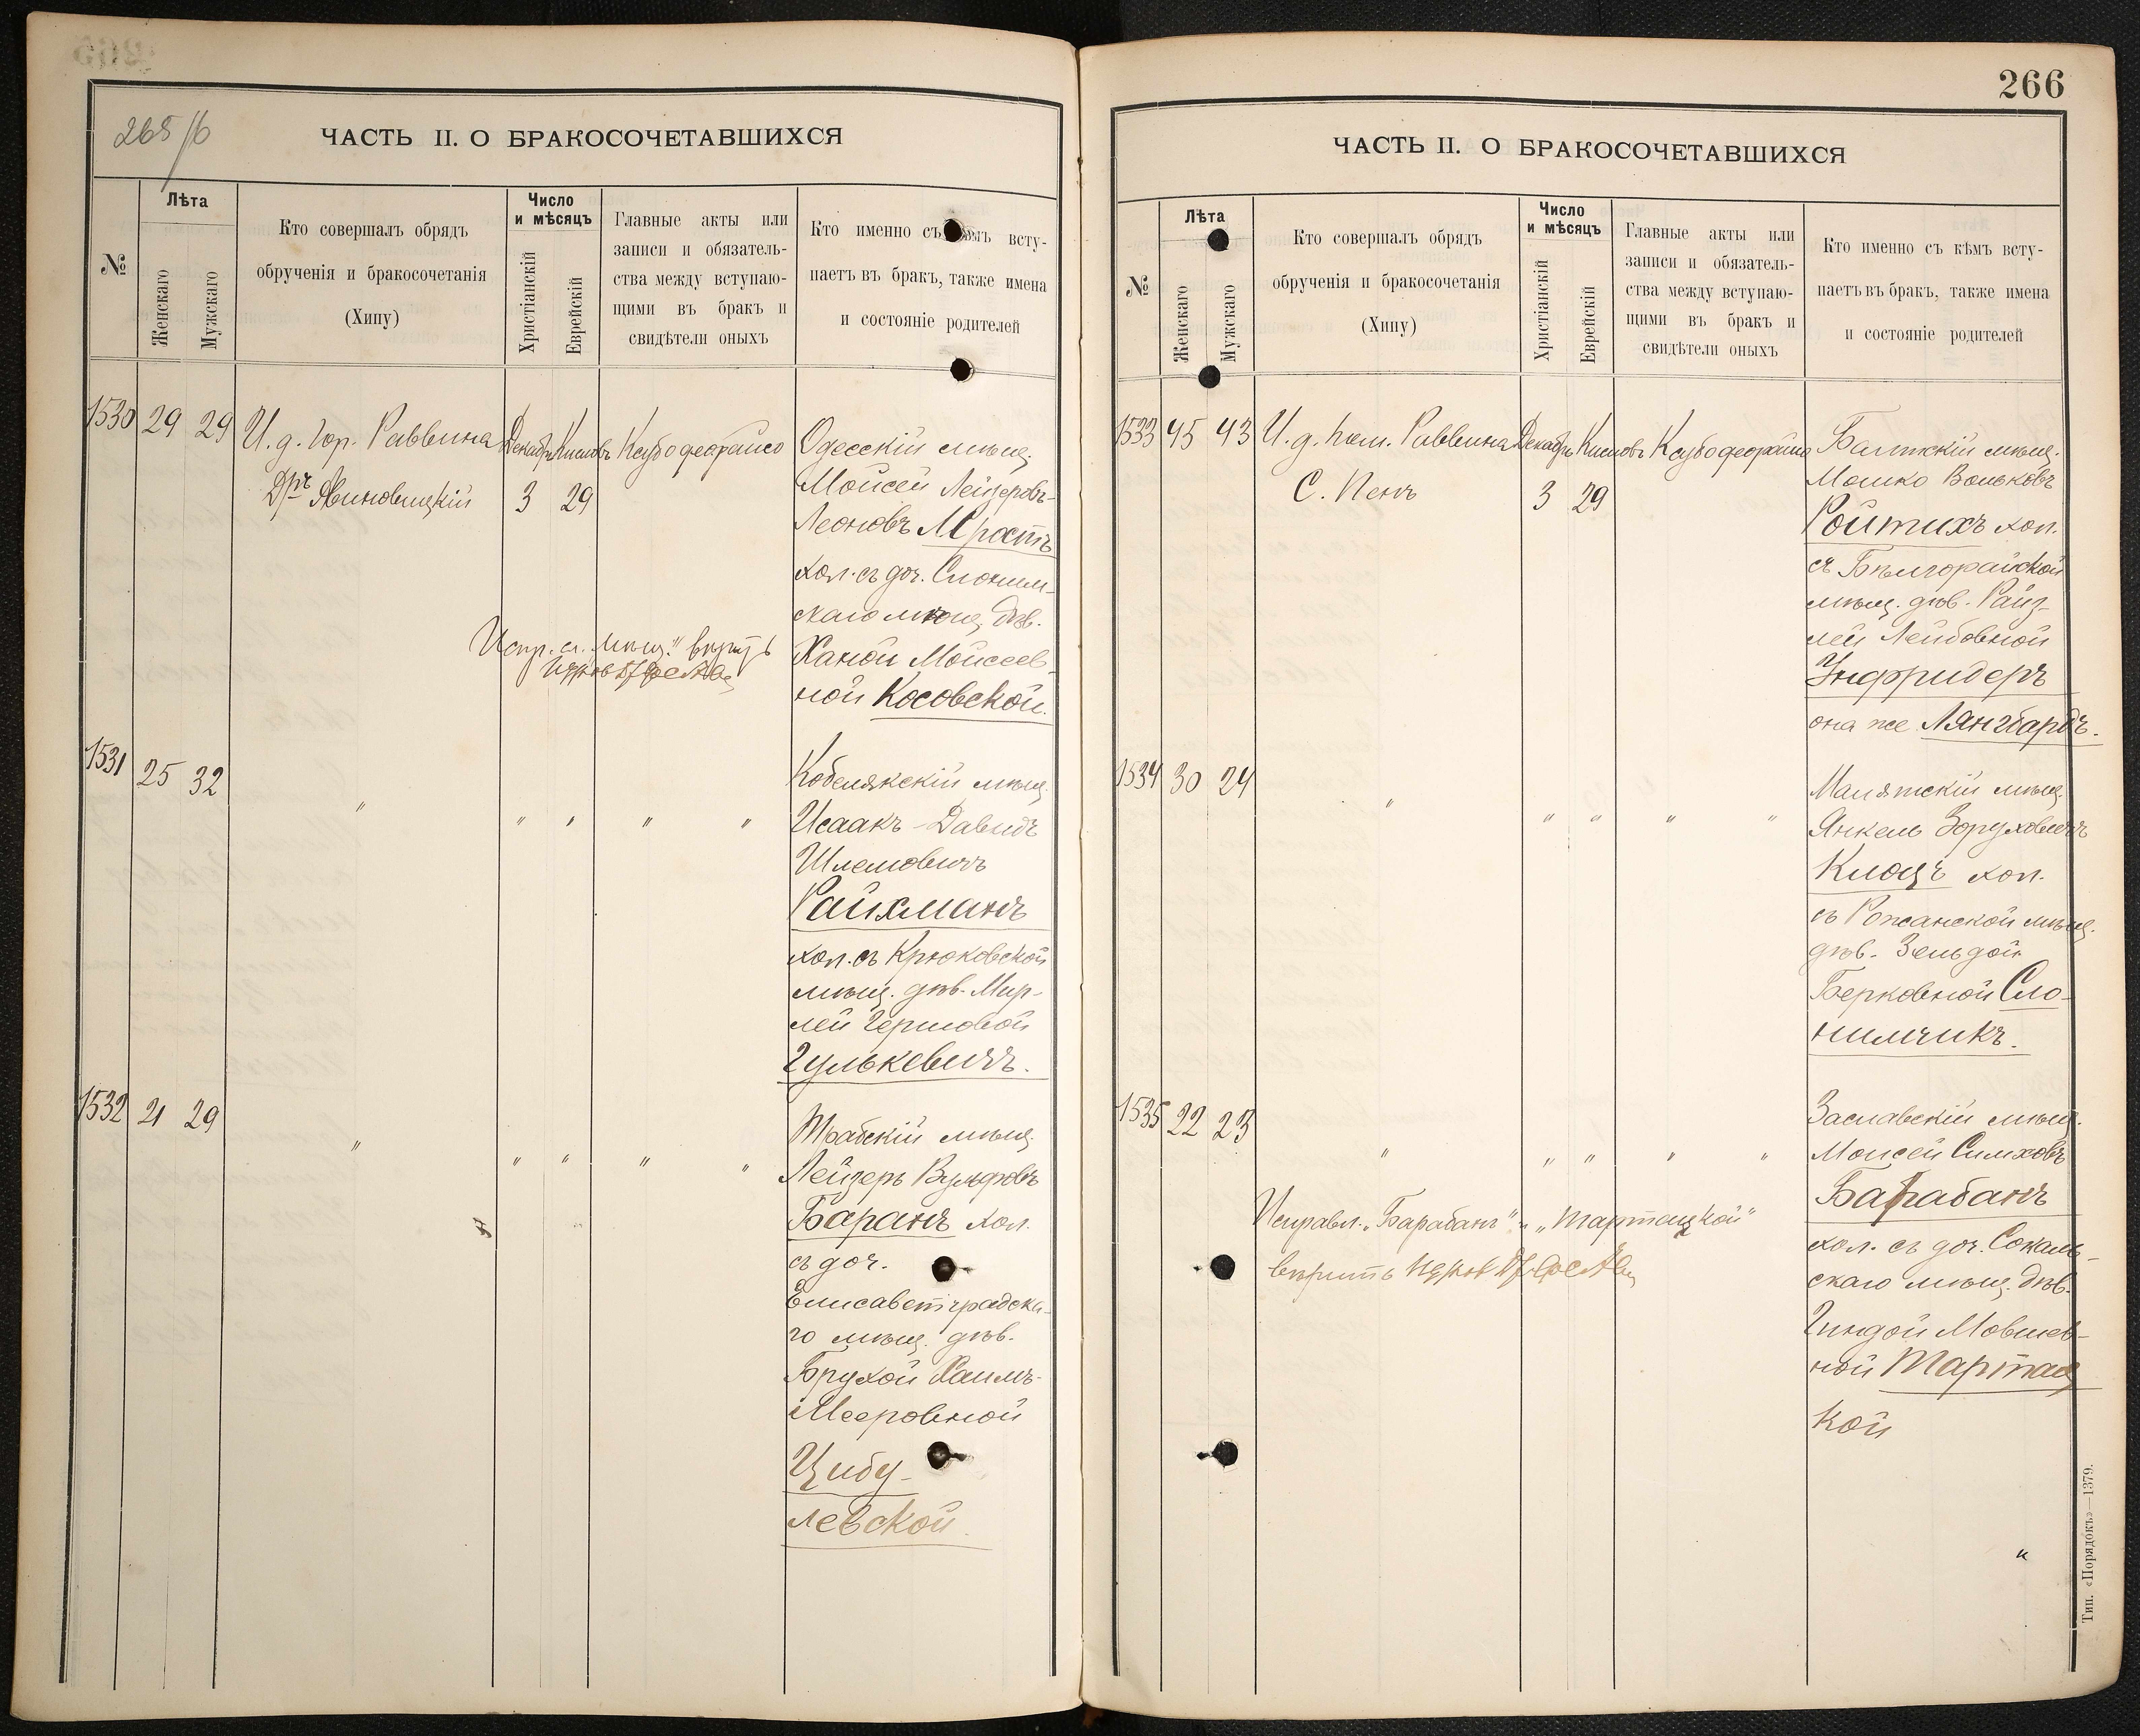 265/б
ЧАСТЬ II. О БРАКОСОЧЕТАВШИХСЯ
№
Лѣта
Женскаго
Мужскаго
Кто совершалъ обрядъ
обрученія и бракосочетанія
(Хипу)
Число
и мѣсяцъ
Христіанскій
Еврейскій
Главные акты или
записи и обязатель-
ства между вступаю-
щими въ бракъ и
свидѣтели оныхъ
Кто именно съ кѣмъ всту-
паетъ въ бракъ, также имена
и состояніе родителей
1530 29 29
И. д. Гор. Раввина
Дръ Явиновицкій
Декабрь Кисловъ
3 29
Одесскій мѣщ.
Мойсей Лейзеровъ-
Леоновъ Мрастъ
хол. съ доч. Слоним-
скаго мѣщ. дѣв.
Ханой Мойсеев-
ной Косовской.
Испр. сл. "мѣщ." вѣрить
1531 25 32
" " " " "
Кобелякскій мѣщ.
Исаакъ-Давидъ
Шлемовичъ
Райхманъ
хол. съ Крюковской
мѣщ. дѣв. Мир-
лей Гершовой
Гулькевичъ.
1532 21 29
" " " " "
Трабскій мѣщ.
Лейзеръ Вульфовъ
Баранъ хол.
съ доч.
Елисаветградска-
го мѣщ. дѣв.
Брухой Хаимъ-
Мееровной
Цибу-
левской
266
ЧАСТЬ II. О БРАКОСОЧЕТАВШИХСЯ
№
Лѣта
Женскаго
Мужскаго
Кто совершалъ обрядъ
обрученія и бракосочетанія
(Хипу)
Число
и мѣсяцъ
Христіанскій
Еврейскій
Главные акты или
записи и обязатель-
ства между вступаю-
щими въ бракъ и
свидѣтели оныхъ
Кто именно съ кѣмъ всту-
паетъ въ бракъ, также имена
и состояніе родителей
1533 45 43
И. д. пом. Раввина
С. Пенъ
Декабрь Кисловъ
3 29
Балтскій мѣщ.
Мошко Вольковъ
Ройтихъ хол.
съ Бѣлгорайской
мѣщ. дѣв. Райз-
лей Лейбовной
Унфридеръ
она же Лянгбардъ.
1534 30 24
" " " " "
Малятскій мѣщ.
Янкель Зоруховичъ
Клоцъ хол.
съ Рожанской мѣщ.
дѣв. Зельдой
Берковной Сло-
нимчикъ.
1535 22 23
" " " " "
Заславскій мѣщ.
Моисей Симховъ
Барабанъ
хол. съ доч. Сокаль-
скаго мѣщ. дѣв.
Гиндой Мовшев-
ной Мартац
кой
Исправл. "Барабанъ" и "Мартацкой"
вѣрить
Тип. «Порядокъ»—1379.